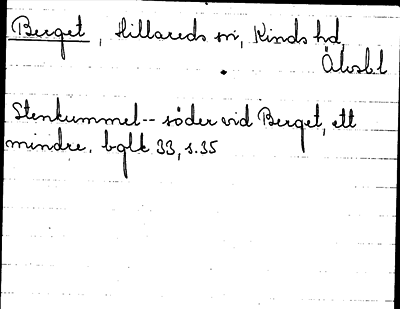 Berget, Hillareds sn, Kinds hd,
Älvsbl
Stenkummel-- söder vid Berget, ett
mindre. bglk 33, s.35